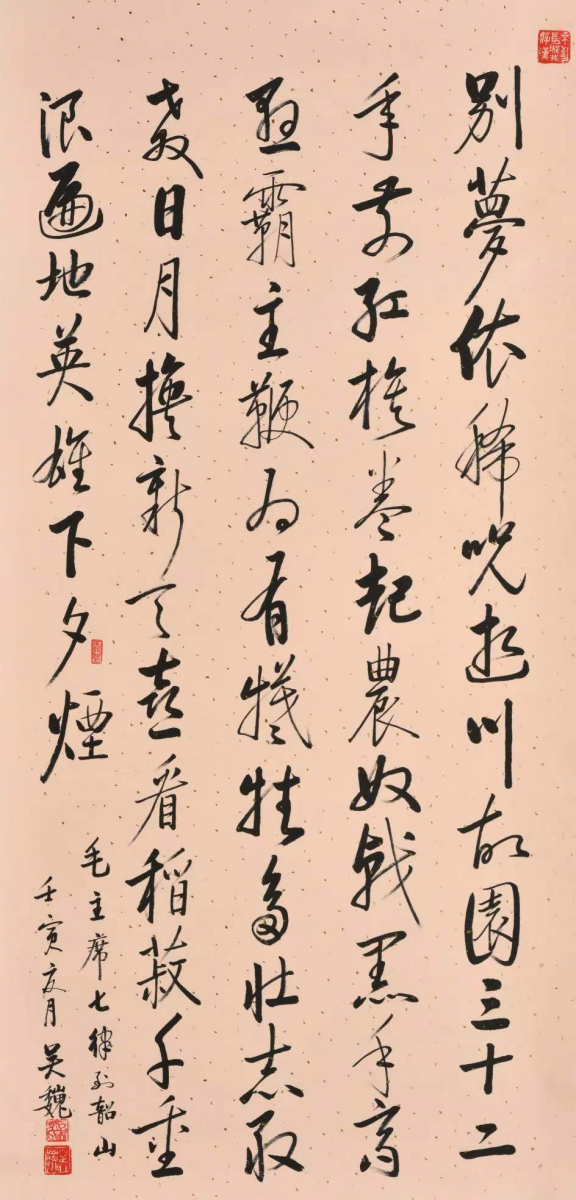 别夢依稀咒逝川故園三十二
年前红旗卷起農奴戟黑手高
悬霸主鞭为有犧牲多壮志敢
教日月換新天喜看稻菽千重
浪遍地英雄下夕煙
毛主席七律到韶山
壬寅夏月 吴魏